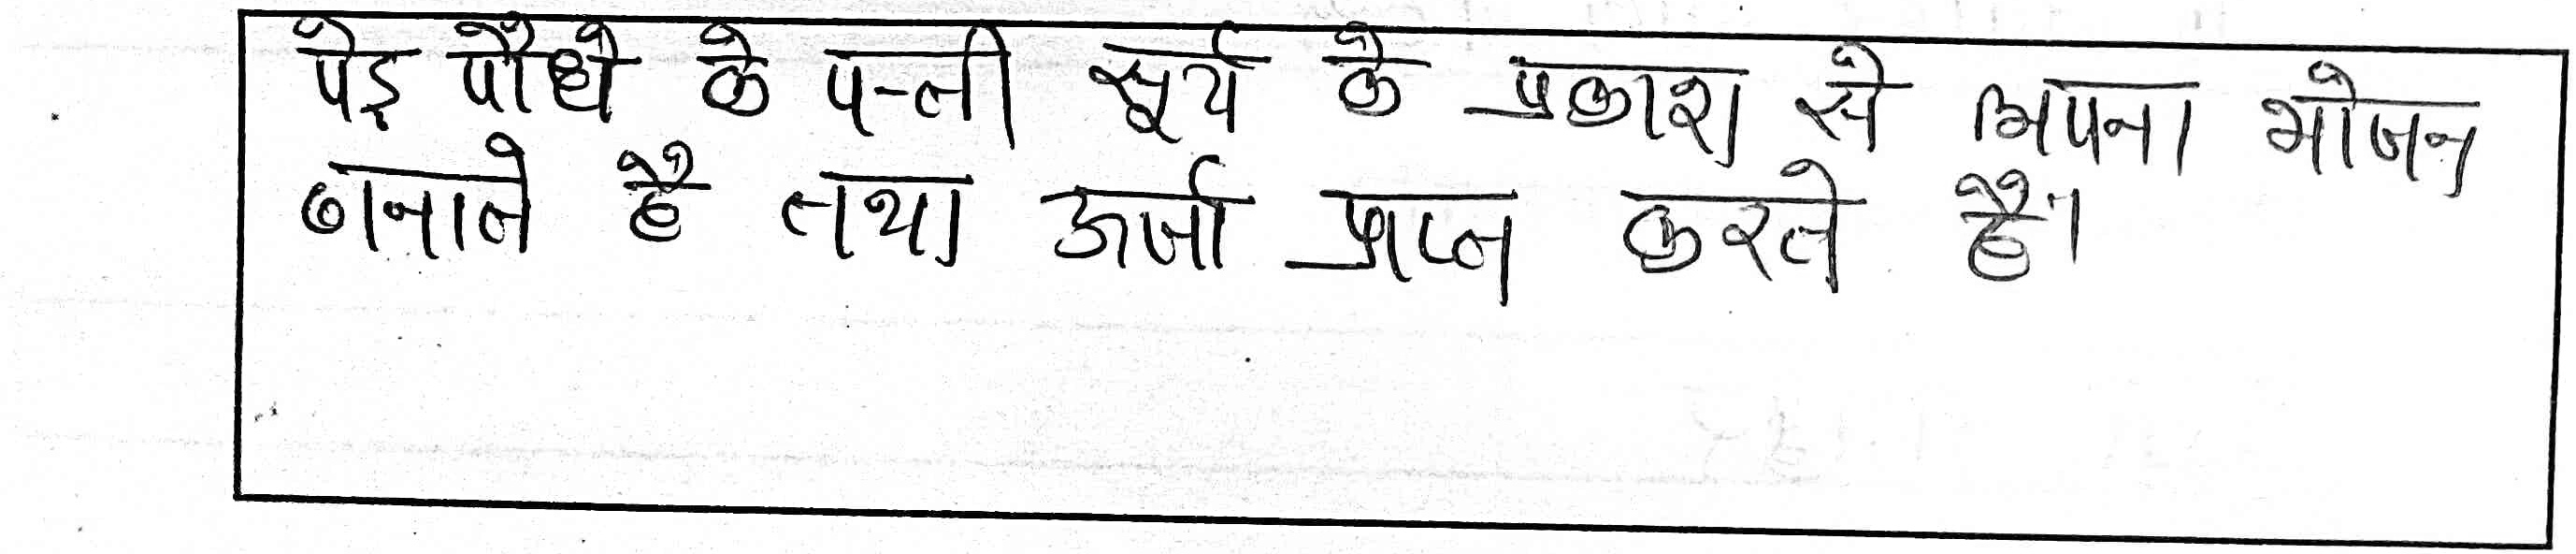 पेड़ पौधे के पत्ती सूर्य के प्रकाश से अपना भोजन
बनाते है तथा ऊर्जा प्राप्त करते है।